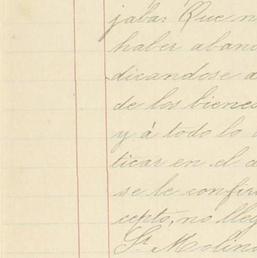 jaba: Que n
haber aban
dicandose a
de los biene
y á todo lo
ticar en el d
se le confir
cepto, no lle
Sr Molin